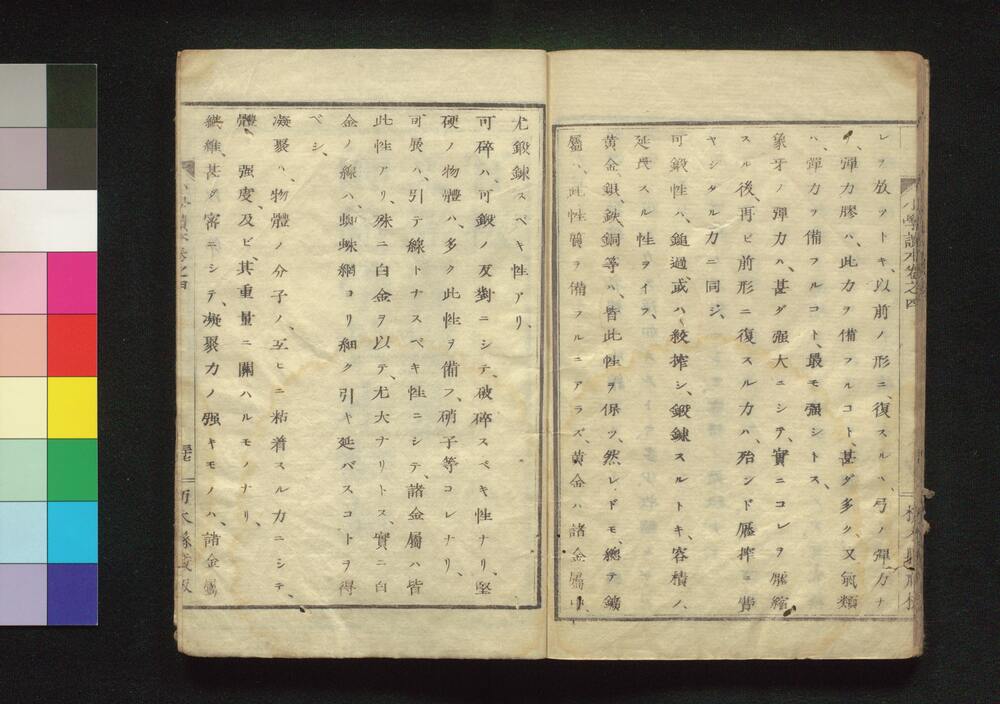 小學讀本卷之四
レヲ放ツトキ、以前ノ形ニ、復スルハ、弓ノ彈力ナ
リ、彈力膠ハ、此力ヲ備フルコト、甚ダ多ク、又氣類
ハ、彈力ヲ備フルコト、最モ强シトス、
象牙ノ彈力ハ、甚ダ强大ニシテ、實ニコレヲ壓縮
スル後、再ビ前形ニ復スル力ハ、殆ンド壓搾ヲ費
ヤシタル力ニ同ジ、
可鍛性ハ、鎚過、或ハ絞搾シ、鍛鍊スルトキ、容積ノ、
延長スル性ヲイフ、
黃金、銀、鉄、銅等ハ、皆此性ヲ保ツ、然レドモ、總テ鑛
屬ハ、此性質ヲ備フルニアラズ、黃金ハ諸金屬中、
尤鍛鍊スベキ性アリ、
可碎ハ、可鍛ノ反對ニシテ、破碎スベキ性ナリ、堅
硬ノ物體ハ、多ク此性ヲ備フ、硝子等コレナリ、
可展ハ、引テ線トナスベキ性ニシテ、諸金屬ハ皆
此性アリ、殊ニ白金ヲ以テ、尤大ナリトス、實ニ白
金ノ線ハ、蜘蛛網ヨリ細ク引キ延バスコトヲ得
ベシ、
凝聚ハ、物體ノ分子ノ、互ヒニ粘着スル力ニシテ、
體ノ强度、及ビ、其重量ニ關ハルモノナリ、
纎維、甚ダ密ニシテ、凝聚力ノ强キモノハ、諸金屬